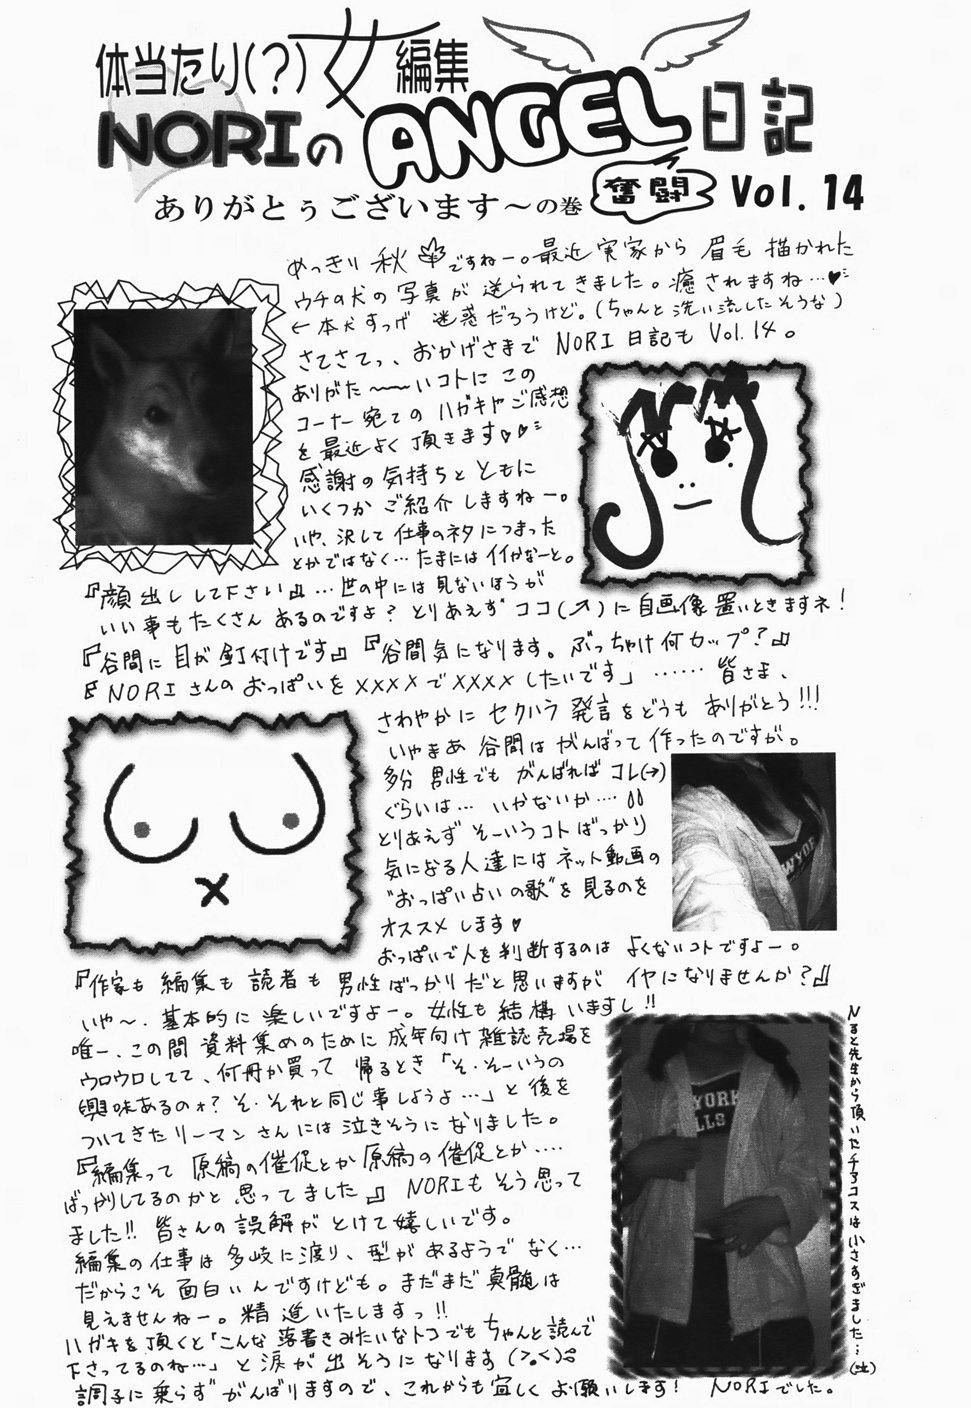 体当たり(?)女編集
NORIのANGEL日記
奮闘
ありがとぅございます～の巻
Vol. 14
めっきり秋ですねー。最近実家から眉毛描かれた
ウチの犬の写真が送られてきました。癒されますね…♥
←本犬すっげ迷惑だろうけど。(ちゃんと洗い流したそうな)
さてさてっ、おかげさまでNORI日記もVol.14。
ありがた〜〜いコトにこの
コーナー宛てのハガキやご感想
を最近よく頂きます♡♡
感謝の気持ちとともに
いくつかご紹介しますねー。
いや、決して仕事のネタにつまった
とかではなく…たまにはイイかなーと。
『顔出しして下さい』…世の中には見ないほうが
いい事もたくさんあるのですよ?とりあえずココ(↗)に自画像置いときますネ!
『谷間に目が釘付けです』『谷間気になります。ぶっちゃけ何カップ?』
『NORIさんのおっぱいを××××で××××したいです」……皆さま、
さわやかにセクハラ発言をどうもありがとう!!!
いやまあ谷間はがんばって作ったのですが。
多分男性でもがんばればコレ(→)
ぐらいは…いかないか…
とりあえずそーいうコトばっかり
気になる人達にはネット動画の
"おっぱい占いの歌"を見るのを
オススメします♥
おっぱいで人を判断するのはよくないコトですよー。
『作家も編集も読者も男性ばっかりだと思いますがイヤになりませんか?』
いや〜、基本的に楽しいですよー。女性も結構いますし!!
唯一、この間資料集めのために成年向け雑誌売場を
ウロウロしてて、何冊か買って帰るとき「そ・そーいうの
興味あるのォ?そ・それと同じ事しようよ…」と後を
ついてきたリーマンさんには泣きそうになりました。
『編集って原稿の催促とか原稿の催促とか‥‥
ばっかりしてるのかと思ってました』NORIもそう思って
ました!!皆さんの誤解がとけて嬉しいです。
編集の仕事は多岐に渡り、型があるようでなく…
だからこそ面白いんですけども。まだまだ真髄は
見えませんねー。精進いたしますっ!!
ハガキを頂くと「こんな落書きみたいなトコでもちゃんと読んで
下さってるのね…」と涙が出そうになります(>。<)
調子に乗らずがんばりますので、これからも宜しくお願いします!NORIでした。
NEW YORK
YORK
LLS
先生から頂いたチアコスは小さすぎました…(泣)